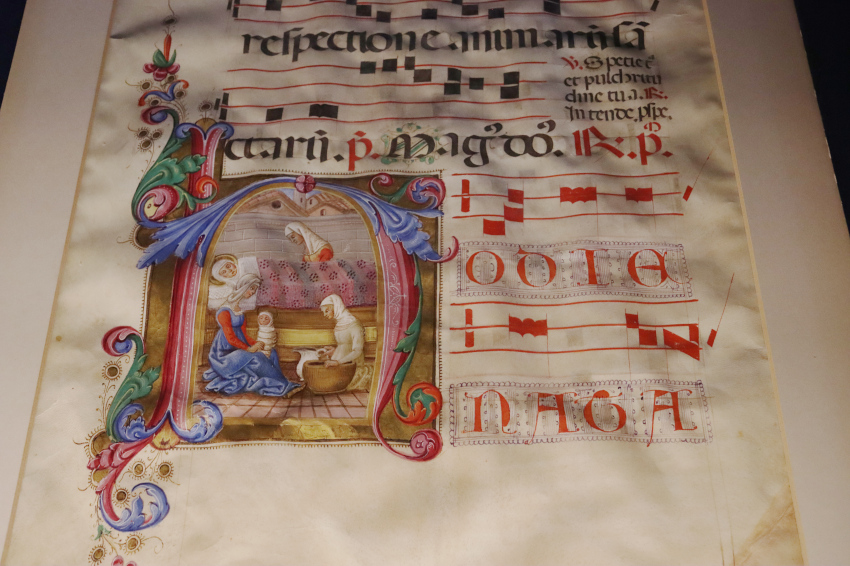 respectione .a.nim.arũ sã
℣. Specie t̃
et pulchritu
dine tu.a. ℟.
Intende, pspe.
ctarũ. p̃. Mag᾽ dõ᾽. ℟. p̃.
HODIE
NATA